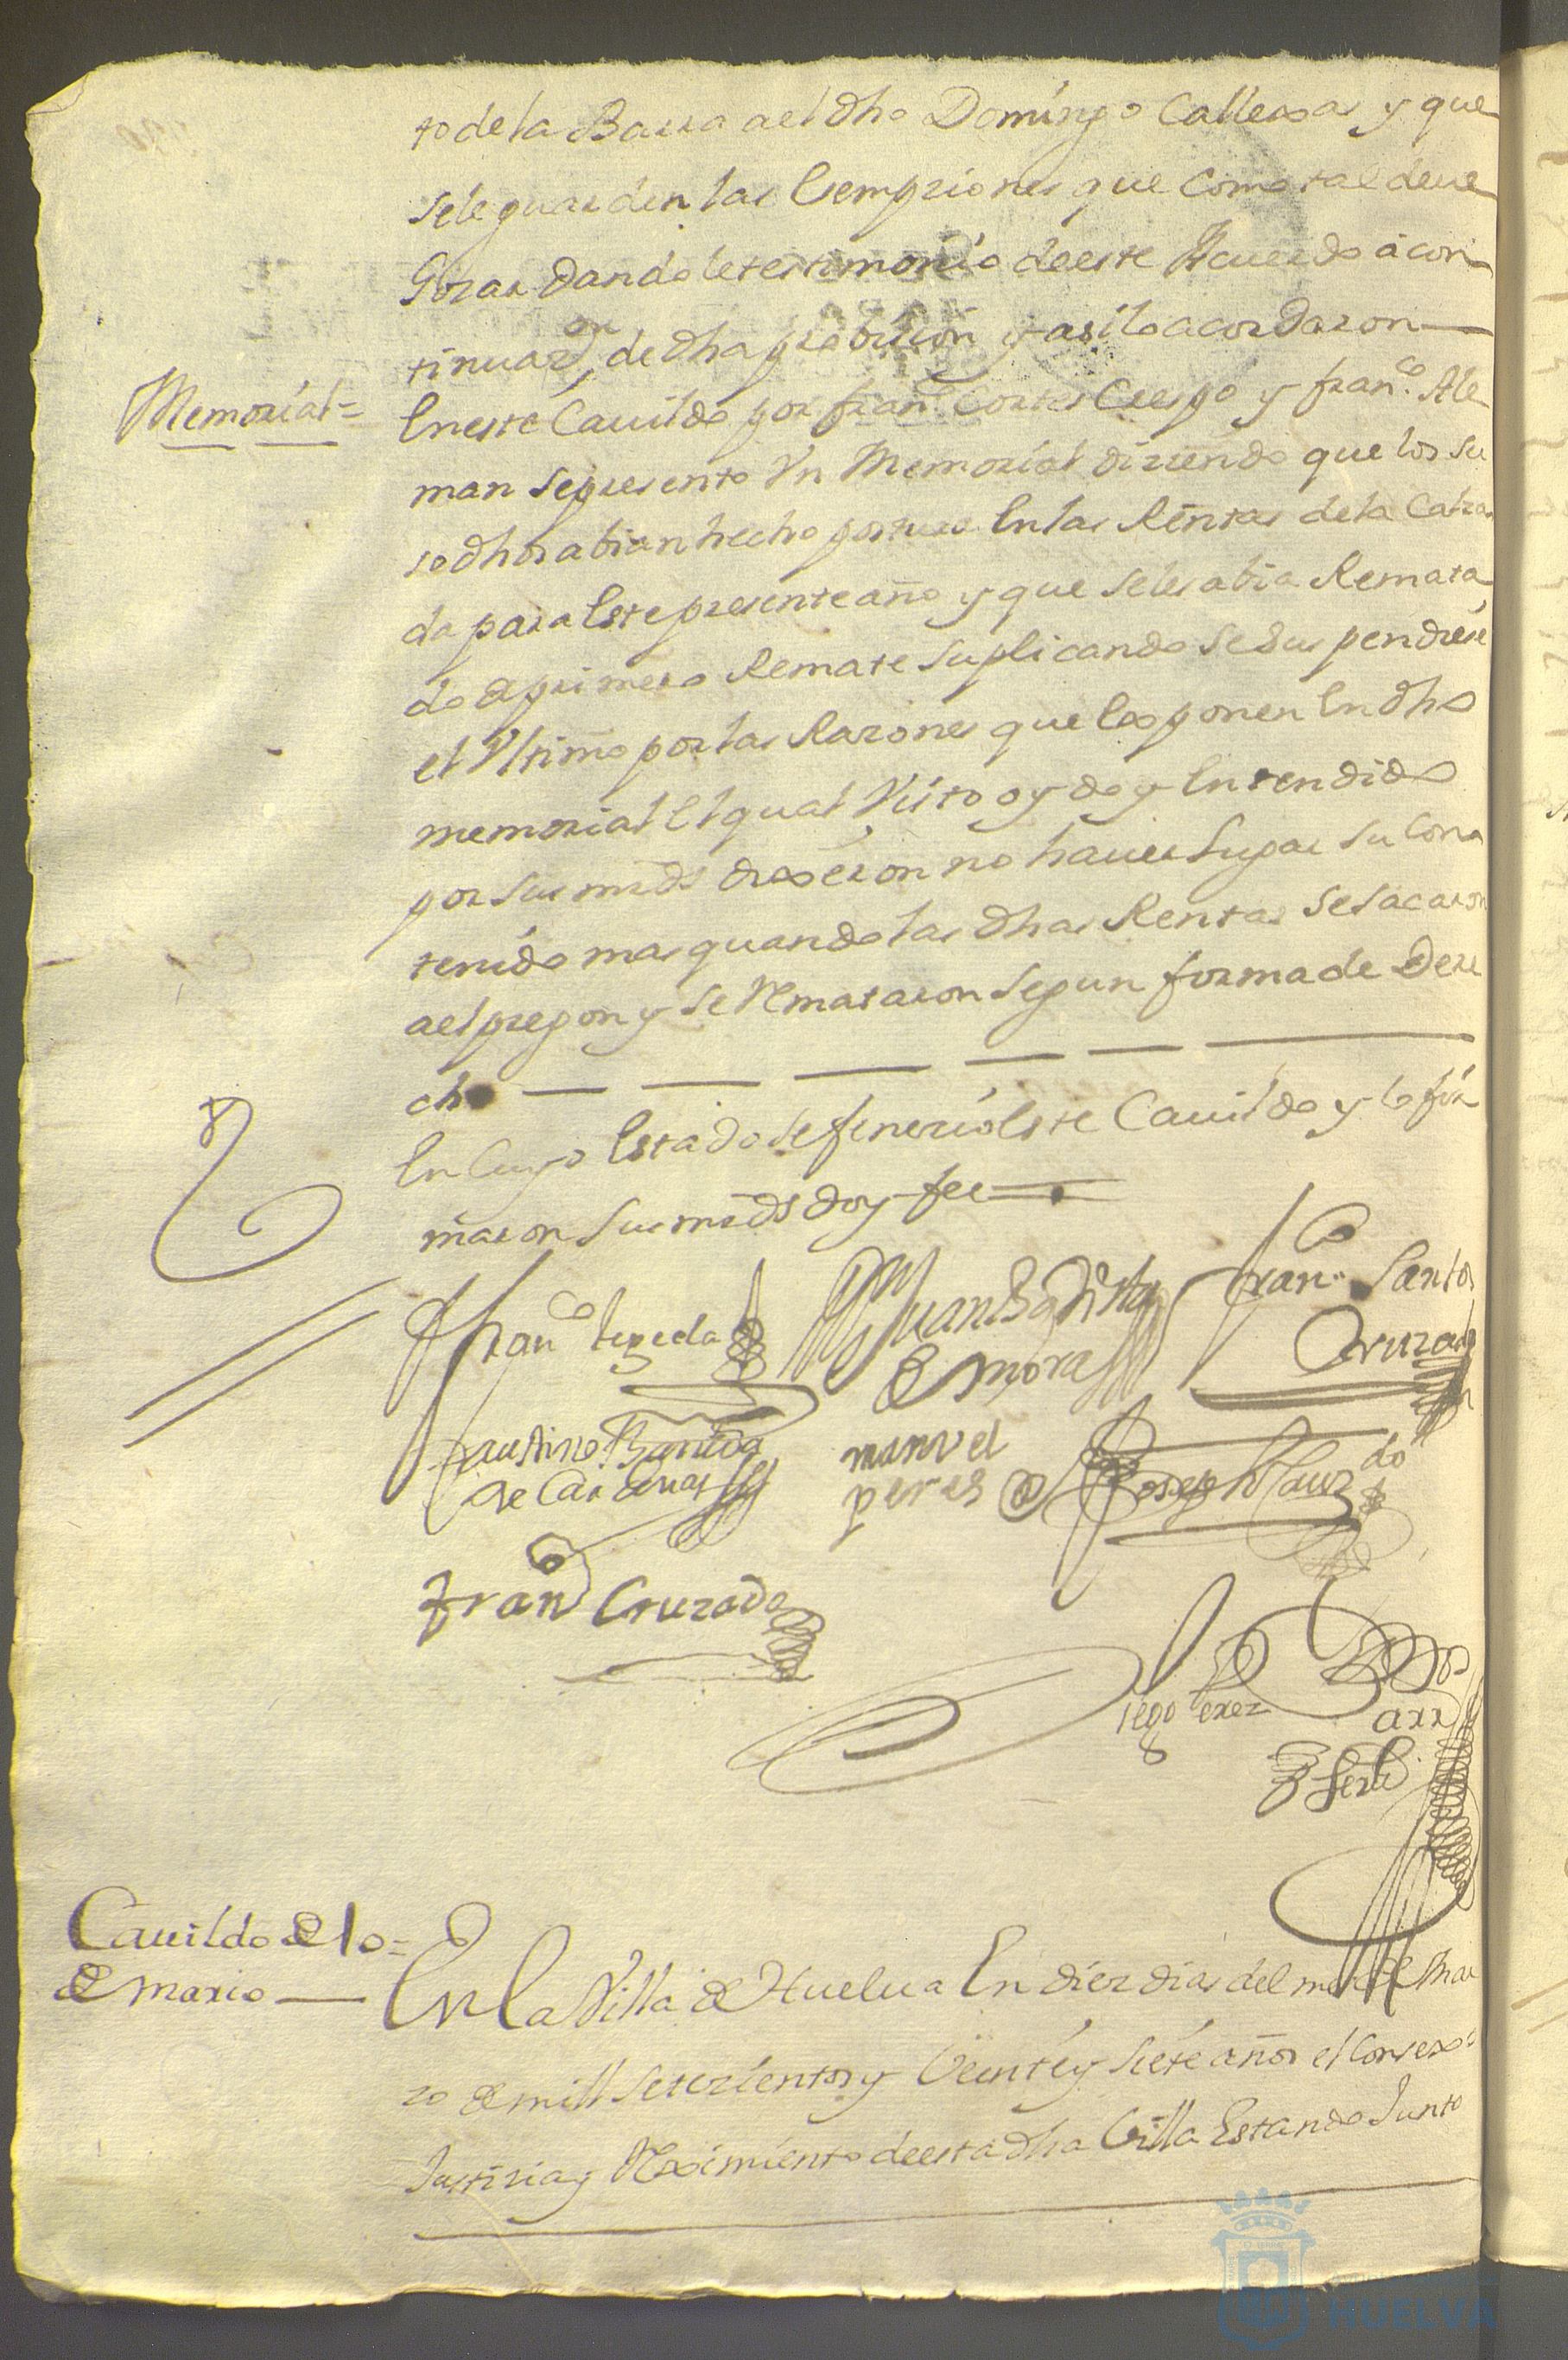 to de la Barra a el dho Domingo Callexas y que
se le guarden las Esempziones que como tal deue
Gozar dandole testimonio de este Acuerdo a con
tinuazon de dha petizion y asi lo acordaron
Memorial=
En este Cauildo por franco Cortes Crespo y franco Ale
man se presento Vn Memorial diziendo que los su
so dhos abian hecho postura En las Rentas de la Calza
da para Este presente año y que se les abia Remata
do de primero Remate suplicando se suspendiese
el Vltimo por las Razones que Exponen En dho
memorial El qual Visto oydo y Entendido
por sus mrds dixeron no hauer Lugar su Con
tenido mas quando las dhas Rentas se sacaron
a el pregon y se Remataron segun forma de Dere
cho
En Cuyo Estado se fenezio Este Cauildo y lo fir
maron sus mrds doy fee
Franco texeda
Juan Batista
de mora
Franco Santos
Cruzado
faustino
de Cardenas
manuel
peres
Joseph
Franco Cruzado
Diego Perez
Cauildo de 10=
de Marzo
En La Villa de Huelua En diez dias del mes de Mar
zo de mill setezientos y Veinte y siete años el Consexo
Justizia y Reximiento de esta dha Villa Estando Junto
HUELVA